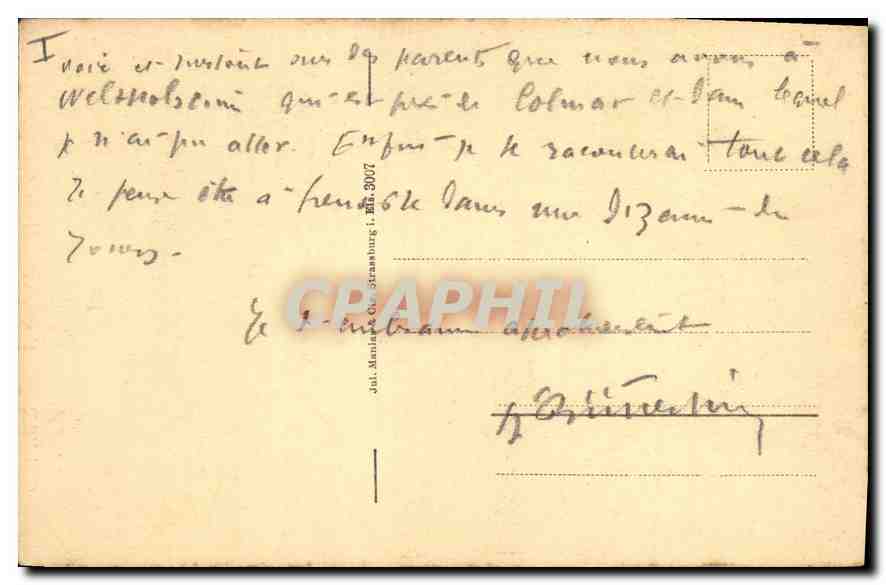 I
voir et surtout sur des parents que nous avons à
qui est près de Colmar et dans lequel
je n'ai pu aller. Enfin je te raconterai tout cela
Je pense être à dans une dizaine de
jours.
Je t'embrasse
Jul. Manias & Cie. Strassburg i. Els. 3007
CPAPHIL